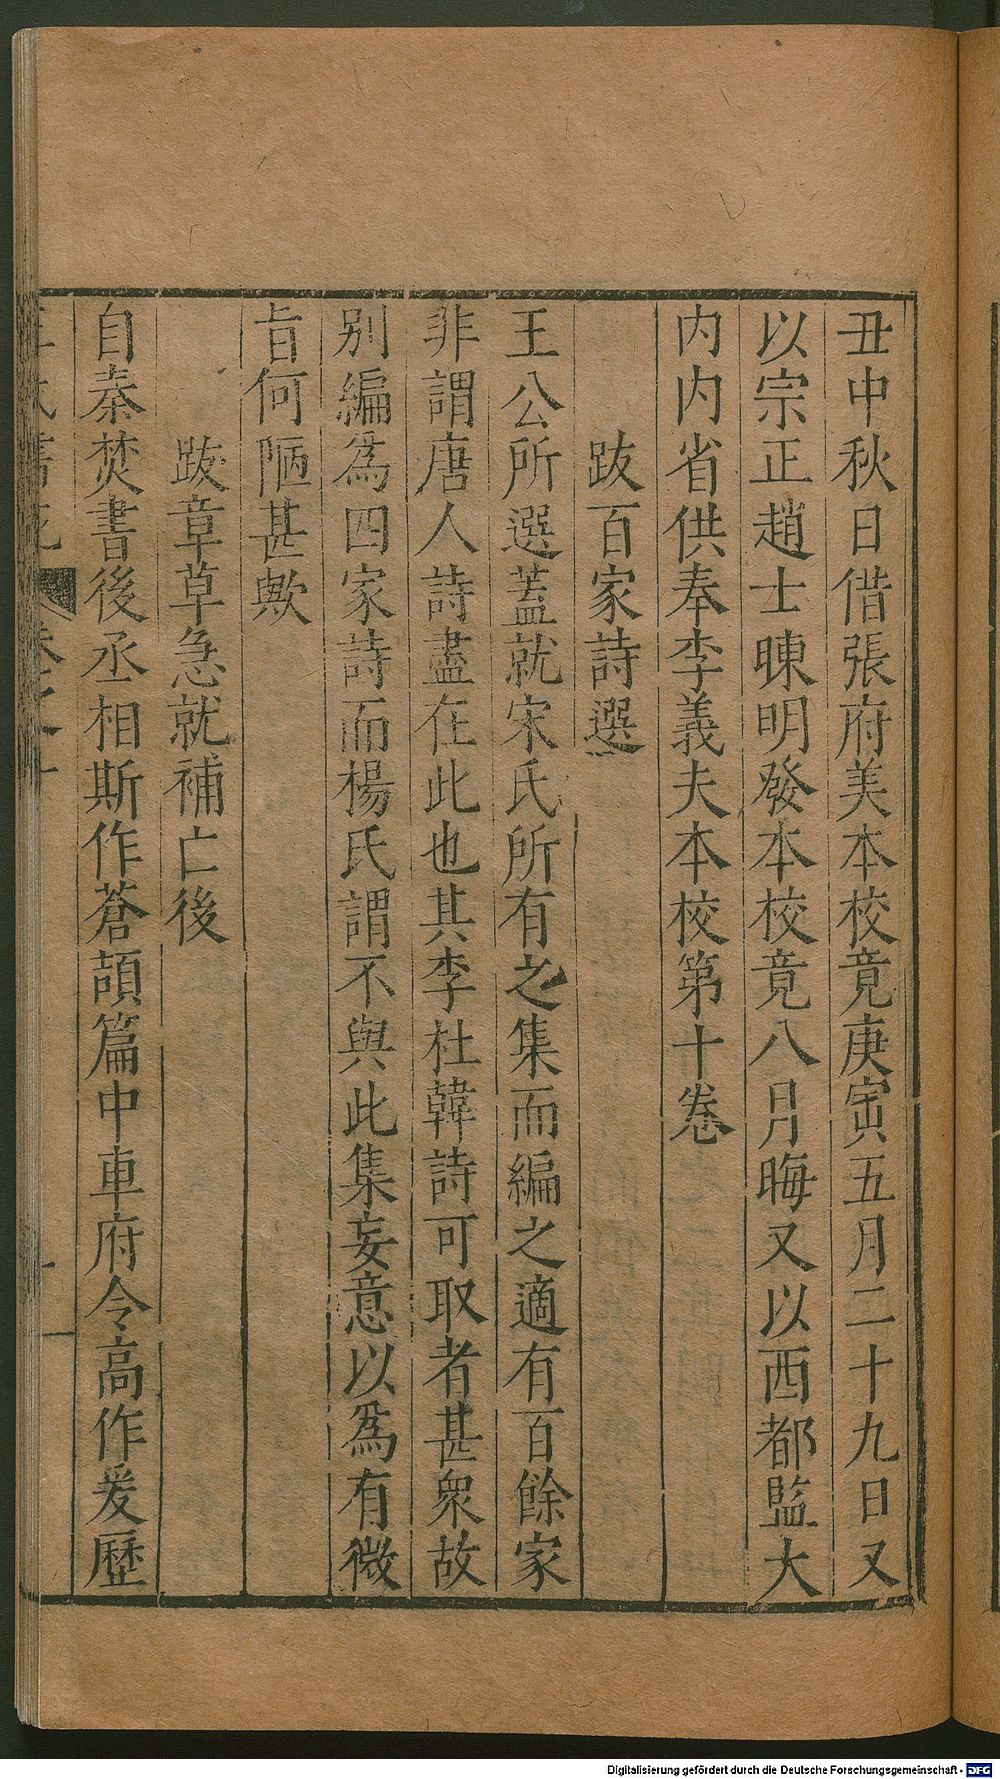 丑中秋日偕張府美本校竟庚寅五月二十九日又
以宗正趙士暕明發本校竟八月晦又以西都監大
内内省供奉李義夫本校第十卷
跋百家詩選
王公所選蓋就宋氏所有之集而編之適有百餘家
非謂唐人詩盡在此也其李杜韓詩可取者甚衆故
别編爲四家詩而楊氏謂不與此集妄意以爲有微
旨何陋甚歟
跋章草急就補亡後
自秦焚書後丞相斯作蒼頡篇中車府令高作爰歷
Digitalisierung gefördert durch die Deutsche Forschungsgemeinschaft - DFG